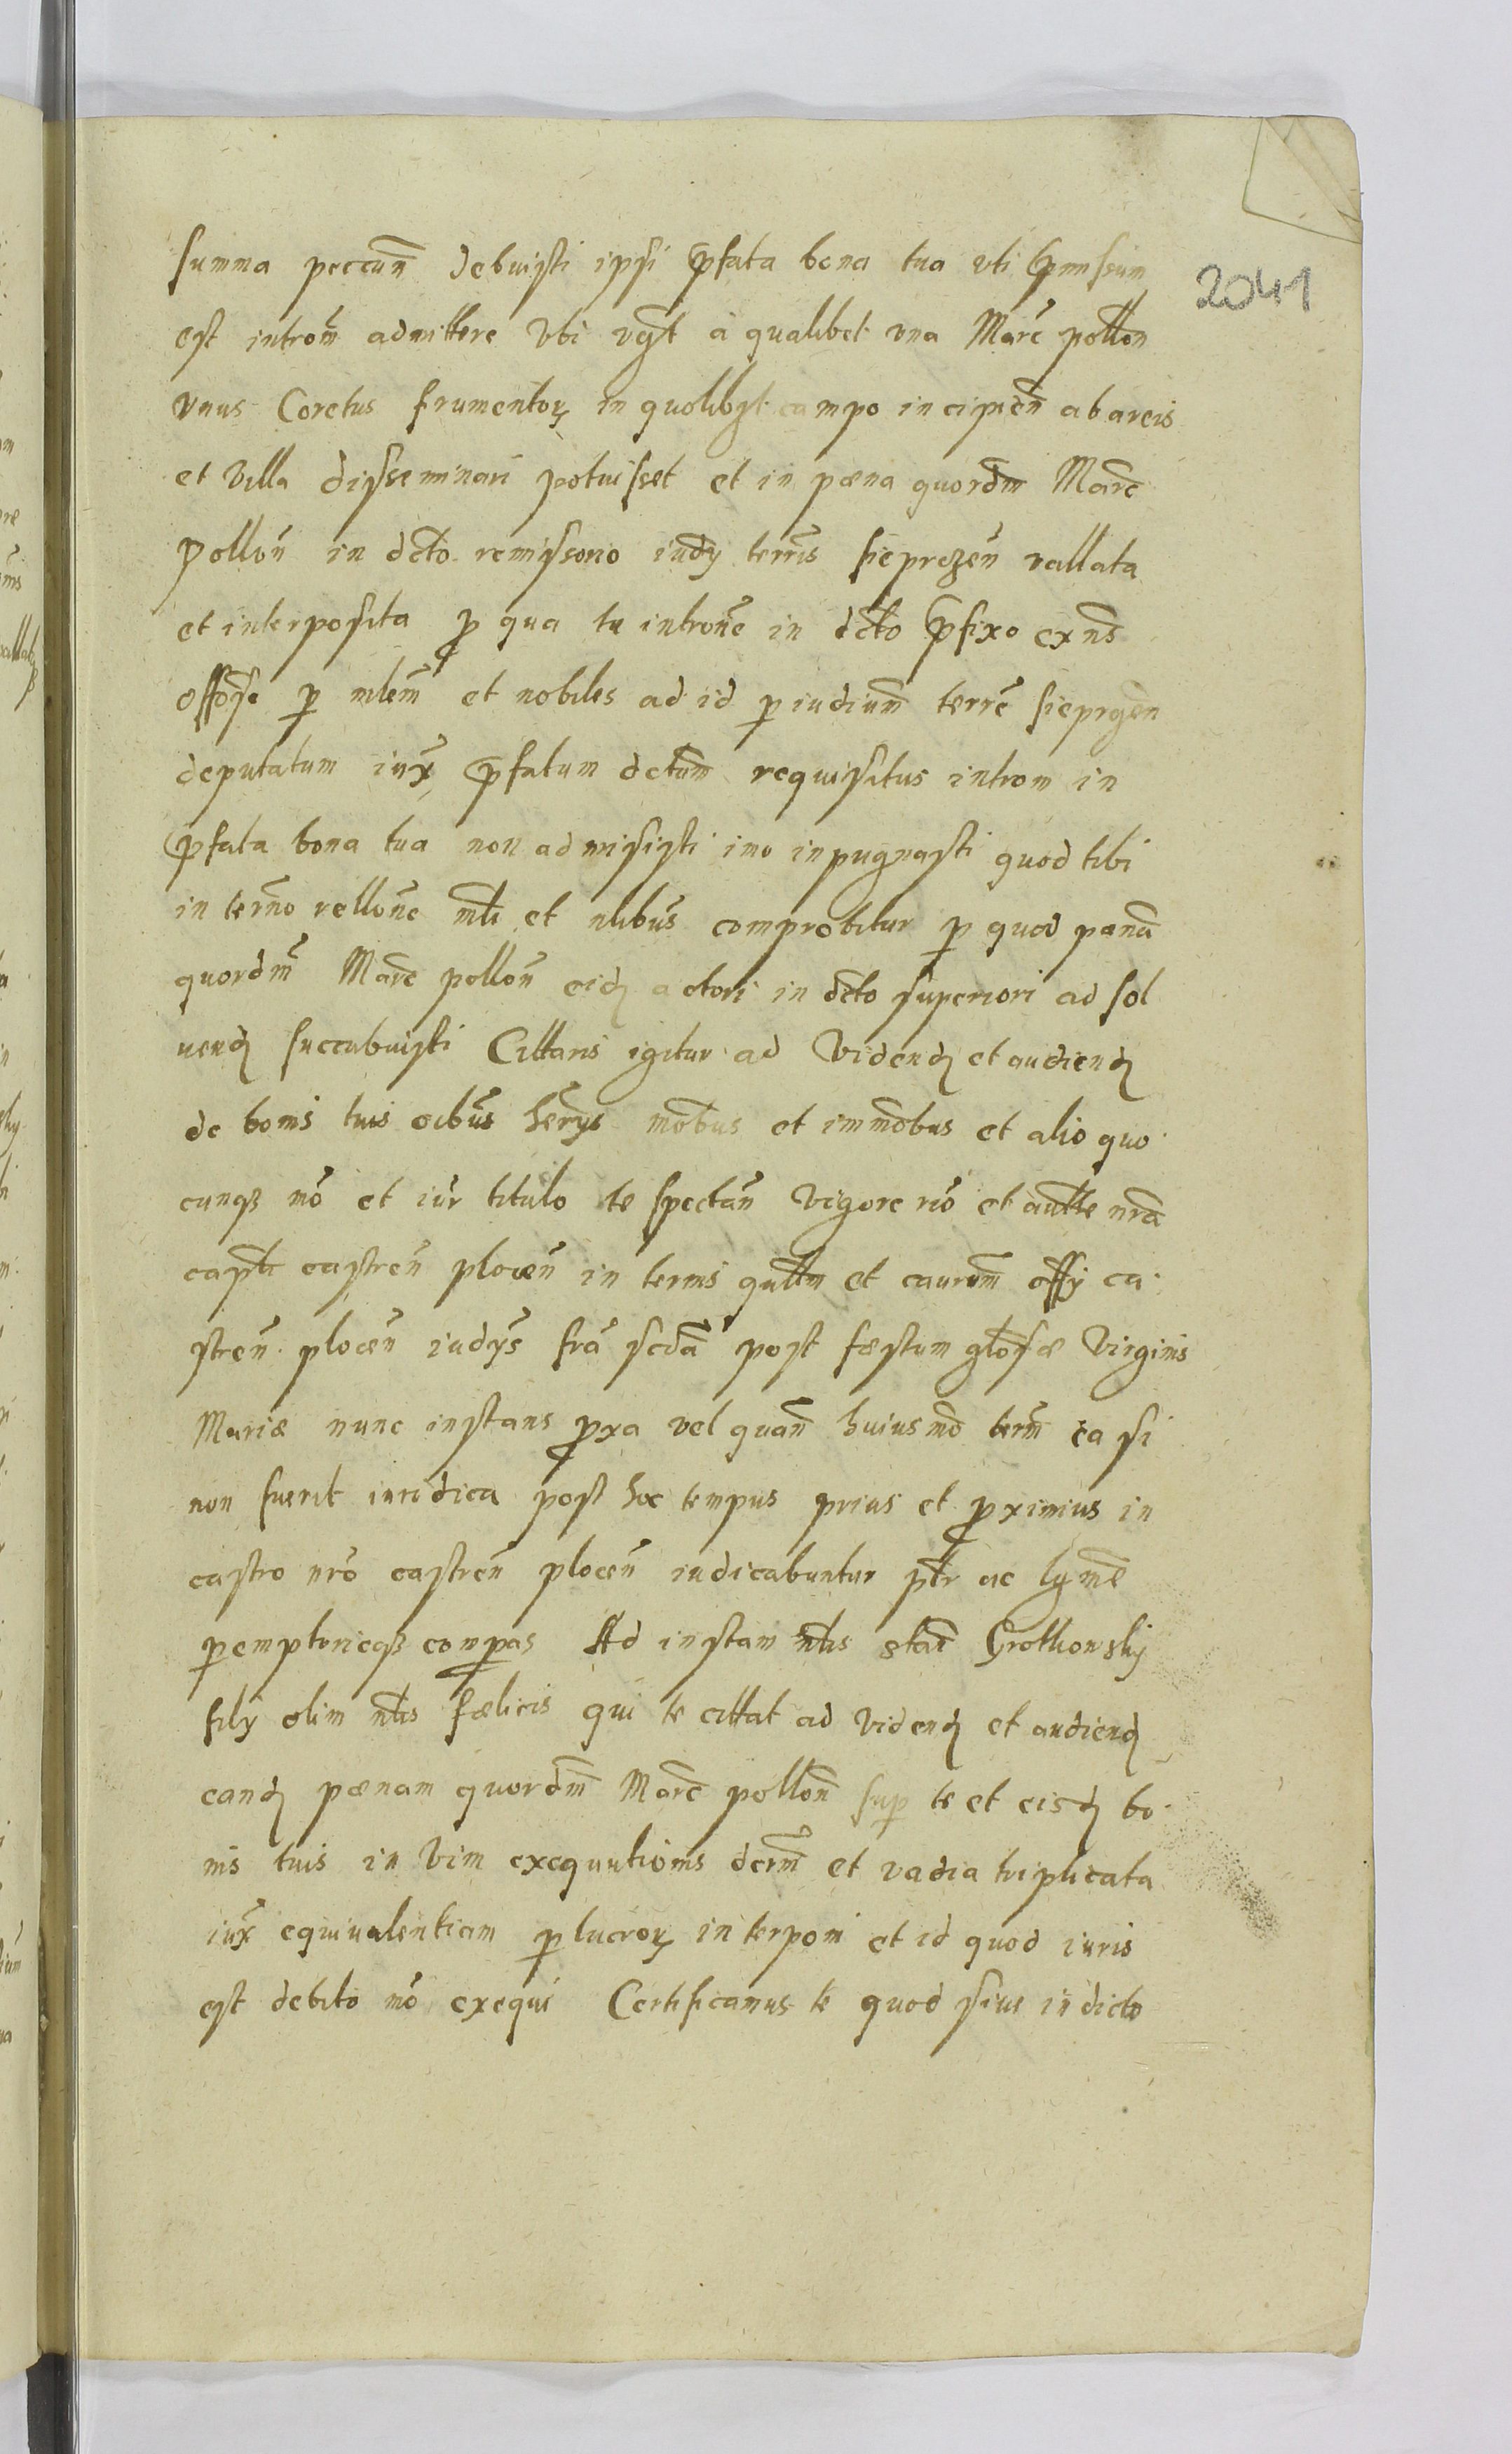 2041
summa peccun̄ debuisti ipsi p̄fata bona tua uti p̄missum
est introm̄ admittere Ubi vg̃t à qualibet una Marc̄ pollon̄
vnus Coretus frumentoꝝ in quolibꝫt campo incipien̄ ab areis
et villa disseminari potuisset et in pæna quordm̄ Marc̄
pollon̄ in dcto remissorio iudy terris̄ sieprzen̄ vallata
et interposita ꝓ qua tu introne̅ in dcto p̄fixo exn̄s
offose ꝑ mlem̄ et nobiles ad id ꝑ iudium̄ terre̅ sieprgen̄
deputatum iux̄ p̄fatum dctum̄ requisitus introm in
p̄fata bona tua non admisisti imo inpugnasti quod tibi
in termn̄o rellone̅ mli et nlibus̄ comprobitur ꝑ quod panā
quordm̄ Marc̄ pollon̄ eidꝫ actori in dcto superiori ad sol
uendꝫ succubuisti Cittaris igitur ad Videndꝫ et audiendꝫ
de bonis tuis oibus̄ herys̄ mobus et immobus et alio quo
cunqꝫ mō et iur̄ titulo te spectan̄ vigore rīo et autte nr̄a
captī castren̄ plocen̄ in termis qulm̄ et caurum̄ offy ca
stren̄ plocen̄ iudys̄ frā scdā post festum glosæ Virginis
Mariæ nunc instans ꝓxa vel quan̄ huiusmō term̄ ca si
non fuerit iuridica post hoc tempus prius et ꝓximius in
castro nrō castren̄ plocen̄ iudicabuntur ptr̄ ac lgme̅
ꝑemptorieqꝫ compas Ad instam nlis stan̄ Grothowsky
fily olim nlis fælicis qui te cittat ad videndꝫ et audiendꝫ
eandꝫ pænam quordm̄ Marc̄ pollon̄ suꝑ te et eisdꝫ bo
nis tuis in vim exequutionis dcrm̄ et vadia triplicata
iux̄ equiualentiam ꝑ lucroꝝ interponi et id quod iuris
est debito mō exequi Certificamus te quod siue in dicto